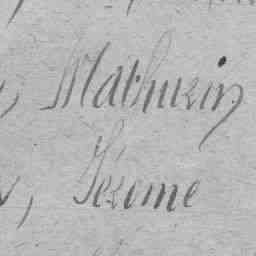 , Mathurin
, Jérome